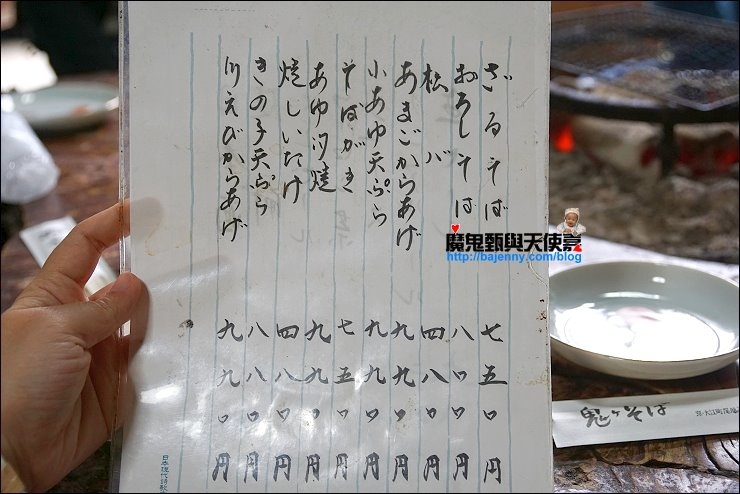 ざるそば 七五〇円
おろしそば 八〇〇円
バ 四八〇円
あまごからあげ 九九〇円
小あゆ天ぷら 九九〇円
そばがき 七五〇円
あゆ汐焼 九九〇円
焼しいたけ 四八〇円
きの子天ぷら 八八〇円
川えびからあげ 九九〇円
魔鬼甄與天使嘉
http://bajenny.com/blog
鬼そば